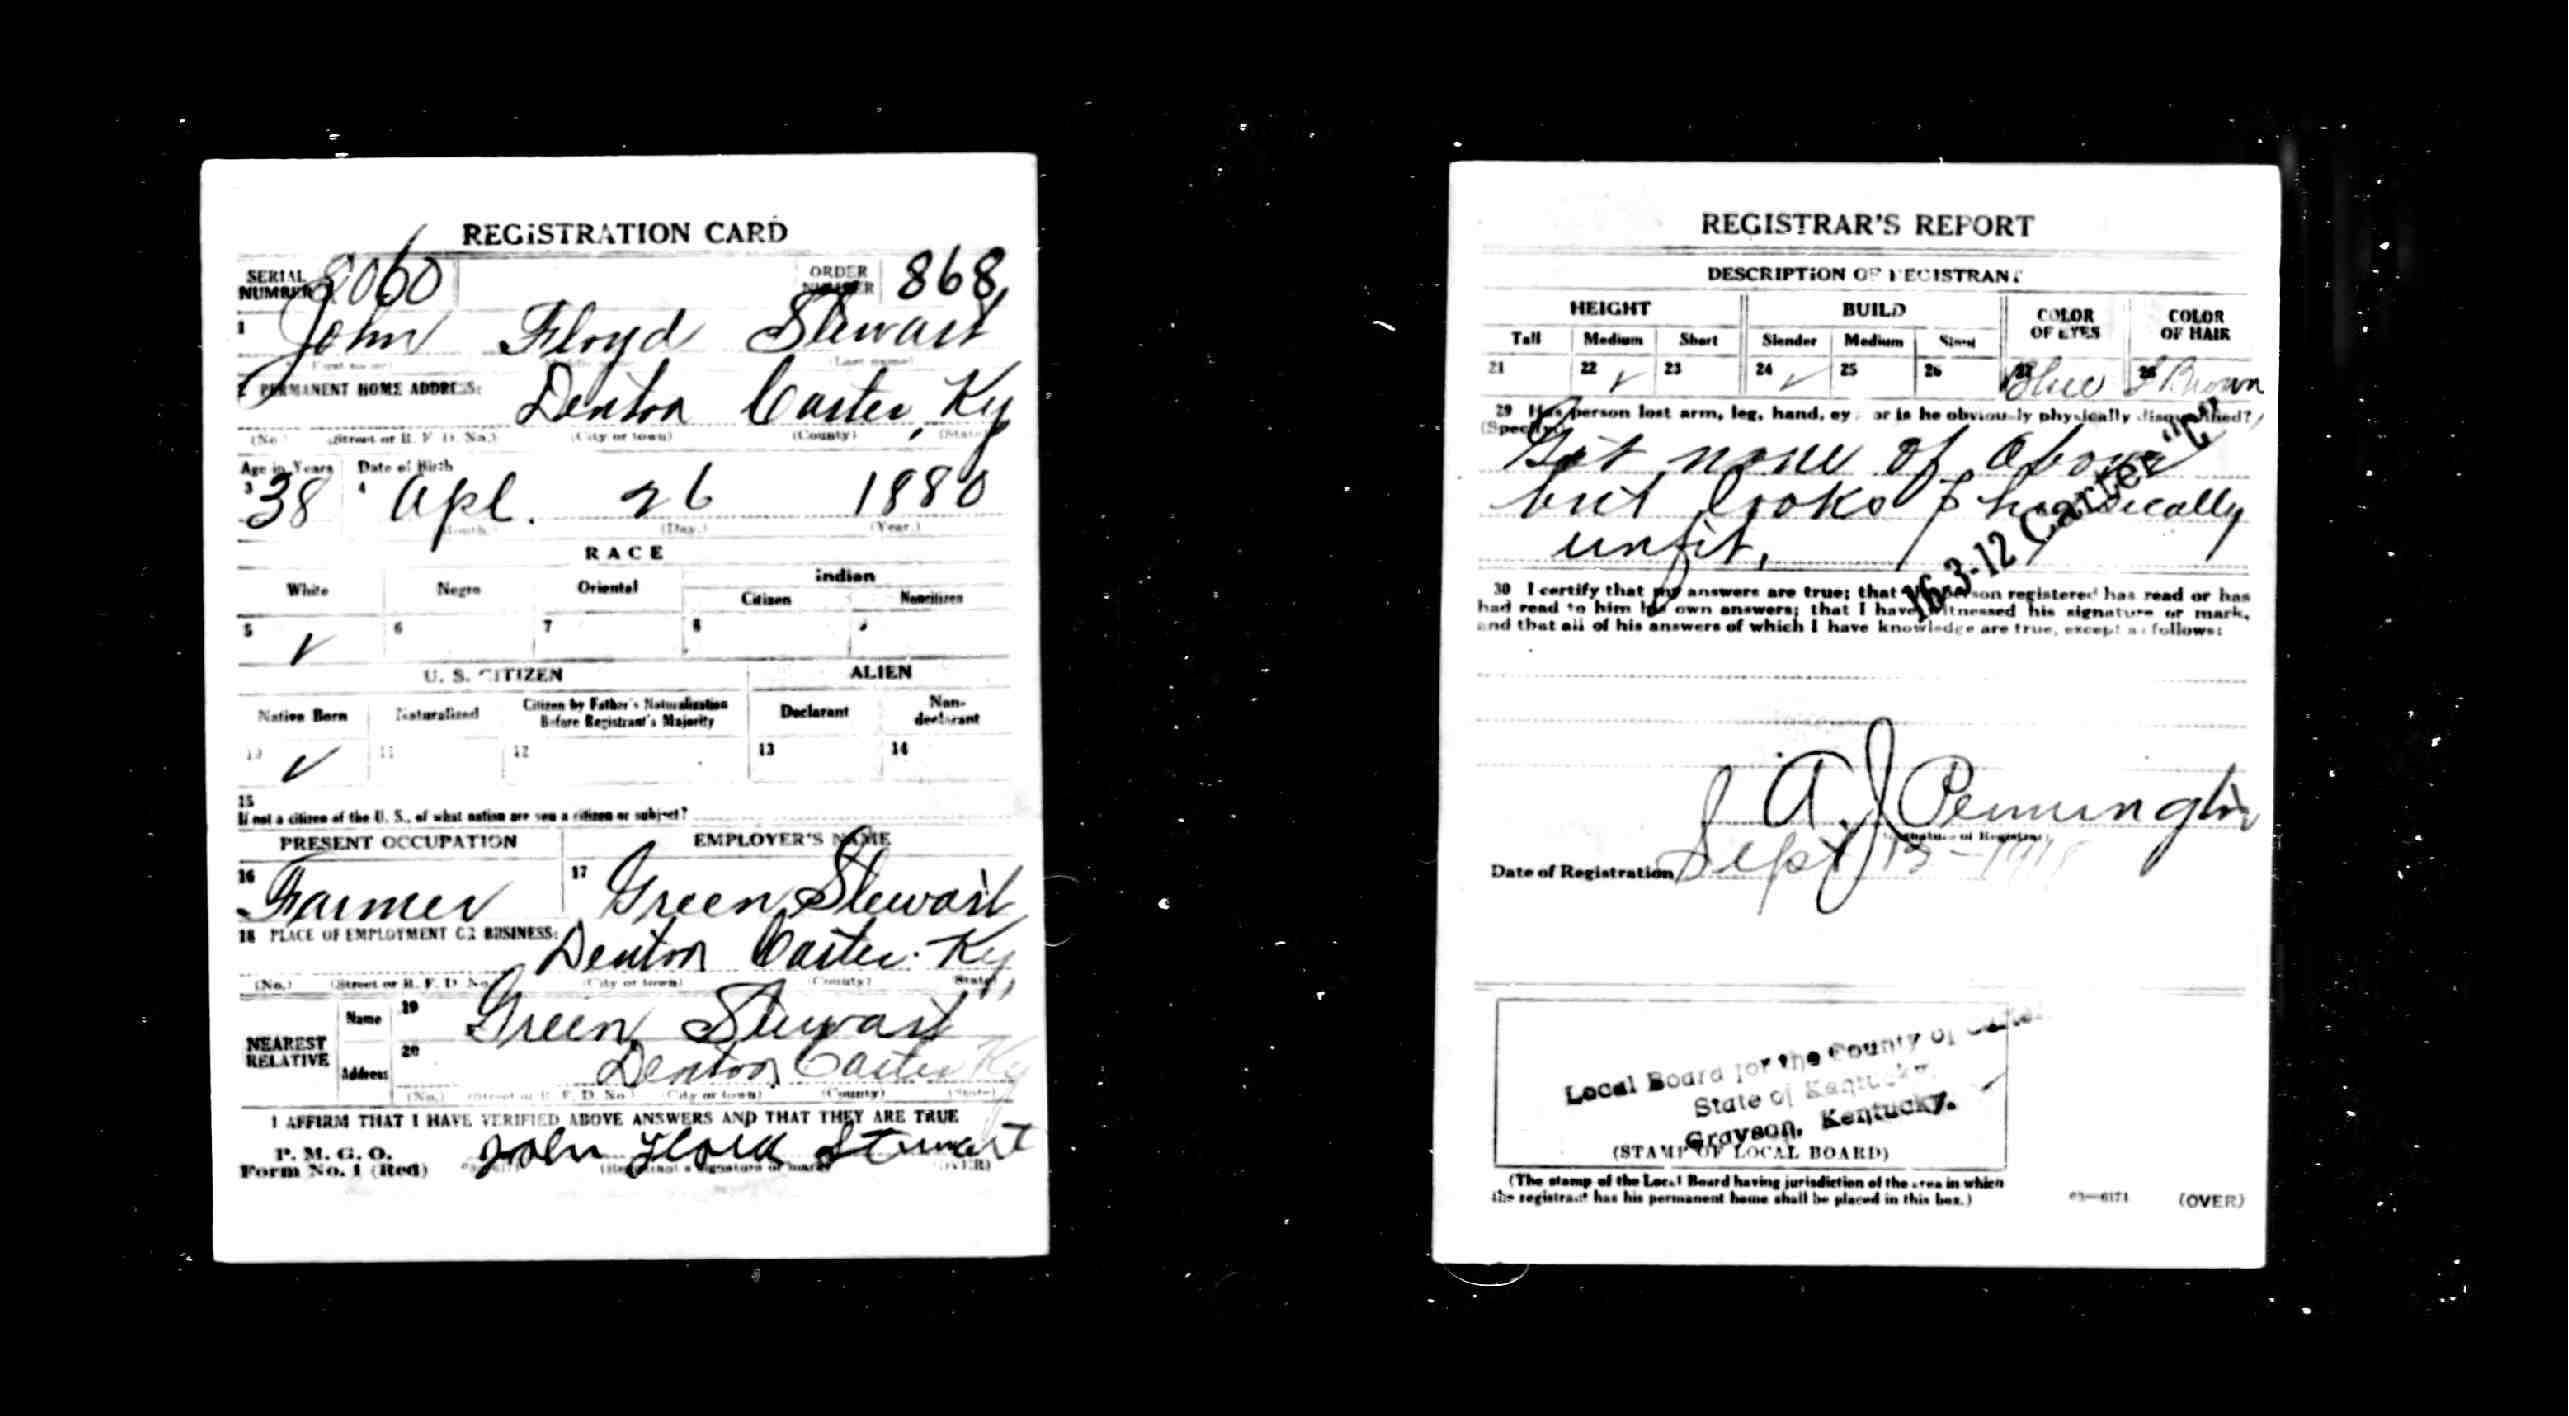 REGISTRATION CARD
SERIAL NUMBER
ORDER NUMBER 868
1 John Floyd Stewart
(Last name)
2 PERMANENT HOME ADDRESS: Denton Carter, Ky
(No.) (Street or R. F. D. No.) (City or town) (County) (State)
Age in Years Date of Birth
3 38 4 Apl. 26 1880
(Month.) (Day.) (Year.)
RACE
White Negro Oriental Indian
Citizen Noncitizen
5 ✓ 6 7 8 9
U. S. CITIZEN ALIEN
Native Born Naturalized Citizen by Father's Naturalization Before Registrant's Majority Declarant Non-declarant
10 ✓ 11 12 13 14
15
If not a citizen of the U. S., of what nation are you a citizen or subject?
PRESENT OCCUPATION EMPLOYER'S NAME
16 Farmer 17 Green Stewart
18 PLACE OF EMPLOYMENT OR BUSINESS: Denton Carter. Ky,
(No.) (Street or R. F. D. No.) (City or town) (County) (State)
NEAREST RELATIVE
Name 19 Green Stewart
Address 20 Denton Carter Ky
(No.) (Street or R. F. D. No.) (City or town) (County) (State)
I AFFIRM THAT I HAVE VERIFIED ABOVE ANSWERS AND THAT THEY ARE TRUE
P. M. G. O.
Form No. 1 (Red) John Floid Stewart
(Registrant's signature or mark) (OVER)
REGISTRAR'S REPORT
DESCRIPTION OF REGISTRANT
HEIGHT BUILD COLOR OF EYES COLOR OF HAIR
Tall Medium Short Slender Medium Stout
21 22 ✓ 23 24 ✓ 25 26 27 Blue 28 Brown
29 Has person lost arm, leg, hand, eye, or is he obviously physically disqualified?
(Specify.)
Got none of above
but looks Phisically
unfit,
16-3-12 Carter "C"
30 I certify that my answers are true; that the person registered has read or has
had read to him his own answers; that I have witnessed his signature or mark,
and that all of his answers of which I have knowledge are true, except as follows:
A. J. Pennington
(Signature of Registrar)
Date of Registration Sept 1918
Local Board for the County of Carter
State of Kentucky.
Grayson, Kentucky.
(STAMP OF LOCAL BOARD)
(The stamp of the Local Board having jurisdiction of the area in which
the registrant has his permanent home shall be placed in this box.)
03—6171 (OVER)